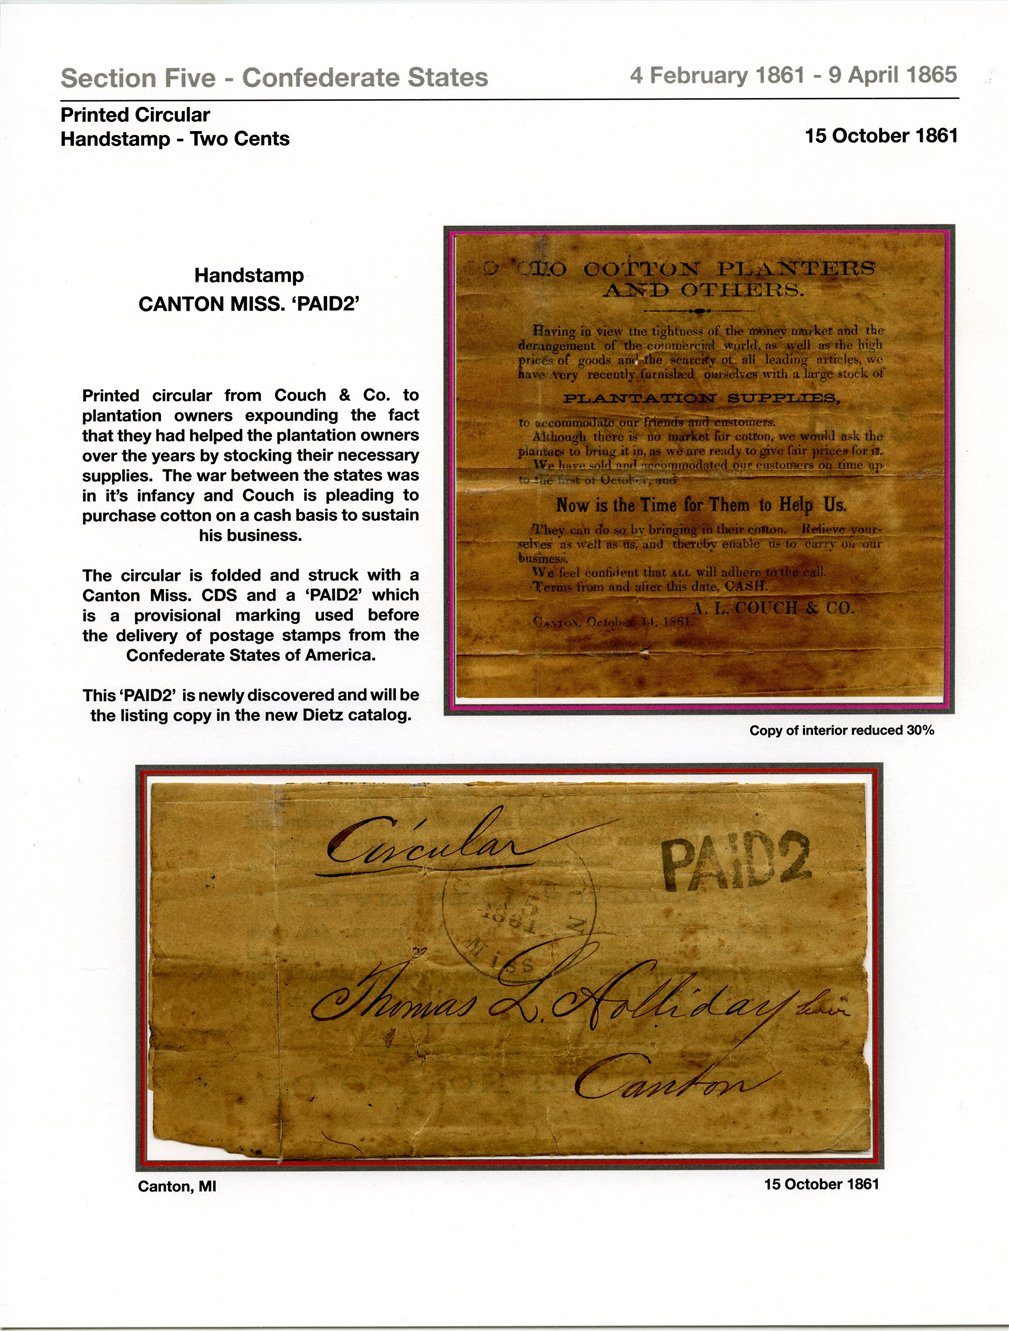 Section Five - Confederate States
4 February 1861 - 9 April 1865
Printed Circular
Handstamp - Two Cents
15 October 1861
Handstamp
CANTON MISS. ‘PAID2’
Printed circular from Couch & Co. to
plantation owners expounding the fact
that they had helped the plantation owners
over the years by stocking their necessary
supplies. The war between the states was
in it’s infancy and Couch is pleading to
purchase cotton on a cash basis to sustain
his business.
The circular is folded and struck with a
Canton Miss. CDS and a ‘PAID2’ which
is a provisional marking used before
the delivery of postage stamps from the
Confederate States of America.
This ‘PAID2’ is newly discovered and will be
the listing copy in the new Dietz catalog.
TO COTTON PLANTERS
AND OTHERS.
Having in view the tightness of the money market and the
derangement of the commercial world, as well as the high
prices of goods and the scarcity of all leading articles, we
have very recently furnished ourselves with a large stock of
PLANTATION SUPPLIES,
to accommodate our friends and customers.
Although there is no market for cotton, we would ask the
planters to bring it in, as we are ready to give fair prices for it.
We have sold and accommodated our customers on time up
to the first of October, and
Now is the Time for Them to Help Us.
They can do so by bringing in their cotton. Relieve your-
selves as well as us, and thereby enable us to carry on our
business.
We feel confident that ALL will adhere to the call.
Terms from and after this date, CASH.
A. L. COUCH & CO.
CANTON, October 14, 1861.
Copy of interior reduced 30%
Circular
PAID2
15
1861
MISS
Thomas L. Holliday
Canton
Canton, MI
15 October 1861